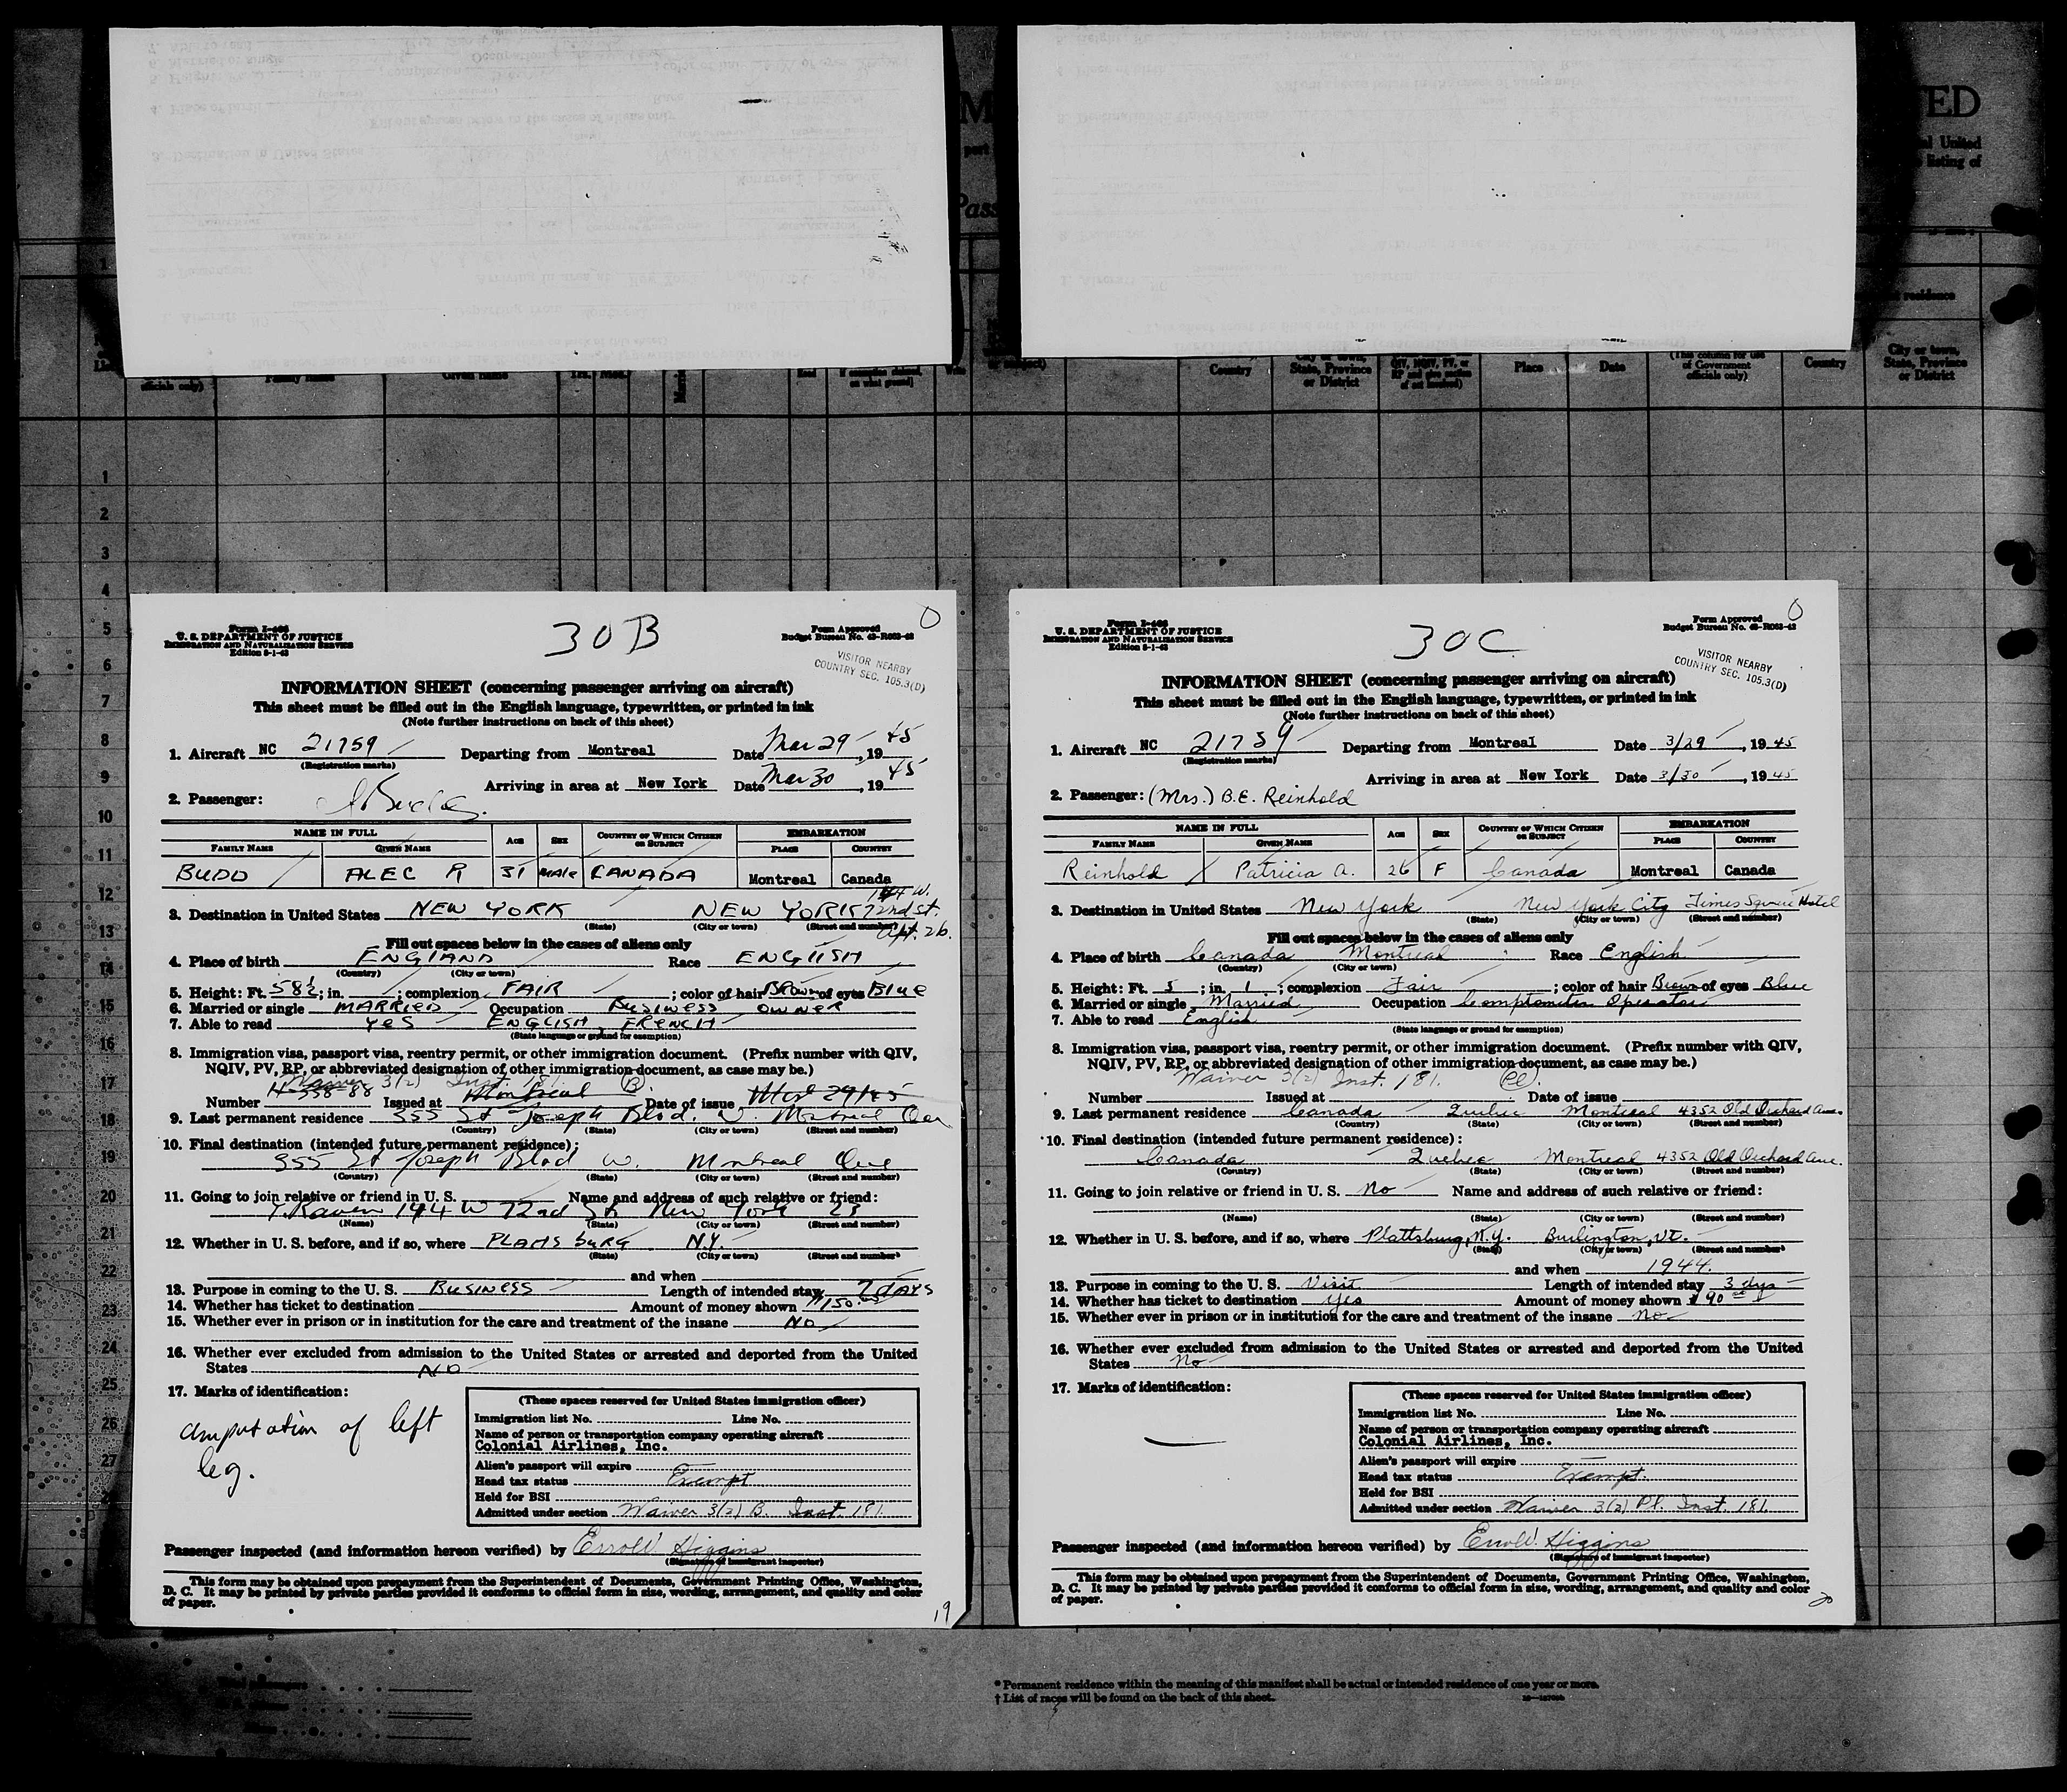 ED
al United
listing of
Pass
residence
Family Name
Given Name
Country
City or town,
State, Province
or District
Place
Date
(This column for use
of Government
officials only)
Country
City or town,
State, Province
or District
1
2
3
4
5
6
7
8
9
10
11
12
13
14
15
16
17
18
19
20
21
22
23
24
25
26
27
30B
Form I-466
U. S. DEPARTMENT OF JUSTICE
IMMIGRATION AND NATURALIZATION SERVICE
Edition 8-1-43
Form Approved
Budget Bureau No. 43-R063-42
VISITOR NEARBY
COUNTRY SEC. 105.3(D)
INFORMATION SHEET (concerning passenger arriving on aircraft)
This sheet must be filled out in the English language, typewritten, or printed in ink
(Note further instructions on back of this sheet)
1. Aircraft NC 21759 Departing from Montreal Date Mar 29, 1945
(Registration marks)
Arriving in area at New York Date Mar 30, 1945
2. Passenger:
NAME IN FULL AGE SEX COUNTRY OF WHICH CITIZEN OR SUBJECT EMBARKATION
FAMILY NAME GIVEN NAME PLACE COUNTRY
BUDD ALEC R 31 MALE CANADA Montreal Canada
3. Destination in United States NEW YORK NEW YORK 144 W. 72nd St. Apt. 2b.
(State) (City or town) (Street and number)
Fill out spaces below in the cases of aliens only
4. Place of birth ENGLAND Race ENGLISH
(Country) (City or town)
5. Height: Ft. 5 8½; in. ; complexion FAIR ; color of hair BROWN of eyes Blue
6. Married or single MARRIED Occupation BUSINESS OWNER
7. Able to read YES ENGLISH, FRENCH
(State language or ground for exemption)
8. Immigration visa, passport visa, reentry permit, or other immigration document. (Prefix number with QIV,
NQIV, PV, RP, or abbreviated designation of other immigration document, as case may be.)
Waiver 3(2) Inst. 181. (B).
Number Issued at Montreal Date of issue
9. Last permanent residence 355 St Joseph Blvd. W. Montreal Que
(Country) (State) (City or town) (Street and number)
10. Final destination (intended future permanent residence):
355 St Joseph Blvd W. Montreal Que
(Country) (State) (City or town) (Street and number)
11. Going to join relative or friend in U. S. Name and address of such relative or friend:
144 W 72nd St New York 23
(Name) (State) (City or town) (Street and number)
12. Whether in U. S. before, and if so, where N.Y.
(State) (City or town) (Street and number)
and when
13. Purpose in coming to the U. S. BUSINESS Length of intended stay 7 DAYS
14. Whether has ticket to destination Amount of money shown $150.00
15. Whether ever in prison or in institution for the care and treatment of the insane NO
16. Whether ever excluded from admission to the United States or arrested and deported from the United
States NO
17. Marks of identification:
amputation of left
leg.
(These spaces reserved for United States immigration officer)
Immigration list No. Line No.
Name of person or transportation company operating aircraft
Colonial Airlines, Inc.
Alien's passport will expire
Head tax status Exempt
Held for BSI
Admitted under section Waiver 3(2) B. Inst. 181
Passenger inspected (and information hereon verified) by Errol W. Higgins
(Signature of immigrant inspector)
This form may be obtained upon prepayment from the Superintendent of Documents, Government Printing Office, Washington,
D. C. It may be printed by private parties provided it conforms to official form in size, wording, arrangement, and quality and color
of paper.
19
30C
Form I-466
U. S. DEPARTMENT OF JUSTICE
IMMIGRATION AND NATURALIZATION SERVICE
Edition 8-1-43
Form Approved
Budget Bureau No. 43-R063-42
VISITOR NEARBY
COUNTRY SEC. 105.3(D)
INFORMATION SHEET (concerning passenger arriving on aircraft)
This sheet must be filled out in the English language, typewritten, or printed in ink
(Note further instructions on back of this sheet)
1. Aircraft NC 21759 Departing from Montreal Date 3/29, 1945
(Registration marks)
Arriving in area at New York Date 3/30, 1945
2. Passenger: (Mrs.) B.E. Reinhold
NAME IN FULL AGE SEX COUNTRY OF WHICH CITIZEN OR SUBJECT EMBARKATION
FAMILY NAME GIVEN NAME PLACE COUNTRY
Reinhold Patricia A. 26 F Canada Montreal Canada
3. Destination in United States New York New York City Times Square Hotel
(State) (City or town) (Street and number)
Fill out spaces below in the cases of aliens only
4. Place of birth Canada Montreal Race English
(Country) (City or town)
5. Height: Ft. 5; in. 1; complexion Fair ; color of hair Brown of eyes Blue
6. Married or single Married Occupation Comptometer Operator
7. Able to read English
(State language or ground for exemption)
8. Immigration visa, passport visa, reentry permit, or other immigration document. (Prefix number with QIV,
NQIV, PV, RP, or abbreviated designation of other immigration document, as case may be.)
Waiver 3(2) Inst. 181. (Pl).
Number Issued at Date of issue
9. Last permanent residence Canada Quebec Montreal 4352 Old Orchard Ave.
(Country) (State) (City or town) (Street and number)
10. Final destination (intended future permanent residence):
Canada Quebec Montreal 4352 Old Orchard Ave.
(Country) (State) (City or town) (Street and number)
11. Going to join relative or friend in U. S. No Name and address of such relative or friend:
(Name) (State) (City or town) (Street and number)
12. Whether in U. S. before, and if so, where Plattsburg, N.Y. Burlington, Vt.
(State) (City or town) (Street and number)
and when 1944.
13. Purpose in coming to the U. S. Visit Length of intended stay 3 dys
14. Whether has ticket to destination Yes Amount of money shown $90
15. Whether ever in prison or in institution for the care and treatment of the insane No
16. Whether ever excluded from admission to the United States or arrested and deported from the United
States No
17. Marks of identification:
(These spaces reserved for United States immigration officer)
Immigration list No. Line No.
Name of person or transportation company operating aircraft
Colonial Airlines, Inc.
Alien's passport will expire
Head tax status Exempt.
Held for BSI
Admitted under section Waiver 3(2) Pl. Inst. 181.
Passenger inspected (and information hereon verified) by Errol W. Higgins
(Signature of immigrant inspector)
This form may be obtained upon prepayment from the Superintendent of Documents, Government Printing Office, Washington,
D. C. It may be printed by private parties provided it conforms to official form in size, wording, arrangement, and quality and color
of paper.
20
* Permanent residence within the meaning of this manifest shall be actual or intended residence of one year or more.
† List of races will be found on the back of this sheet.